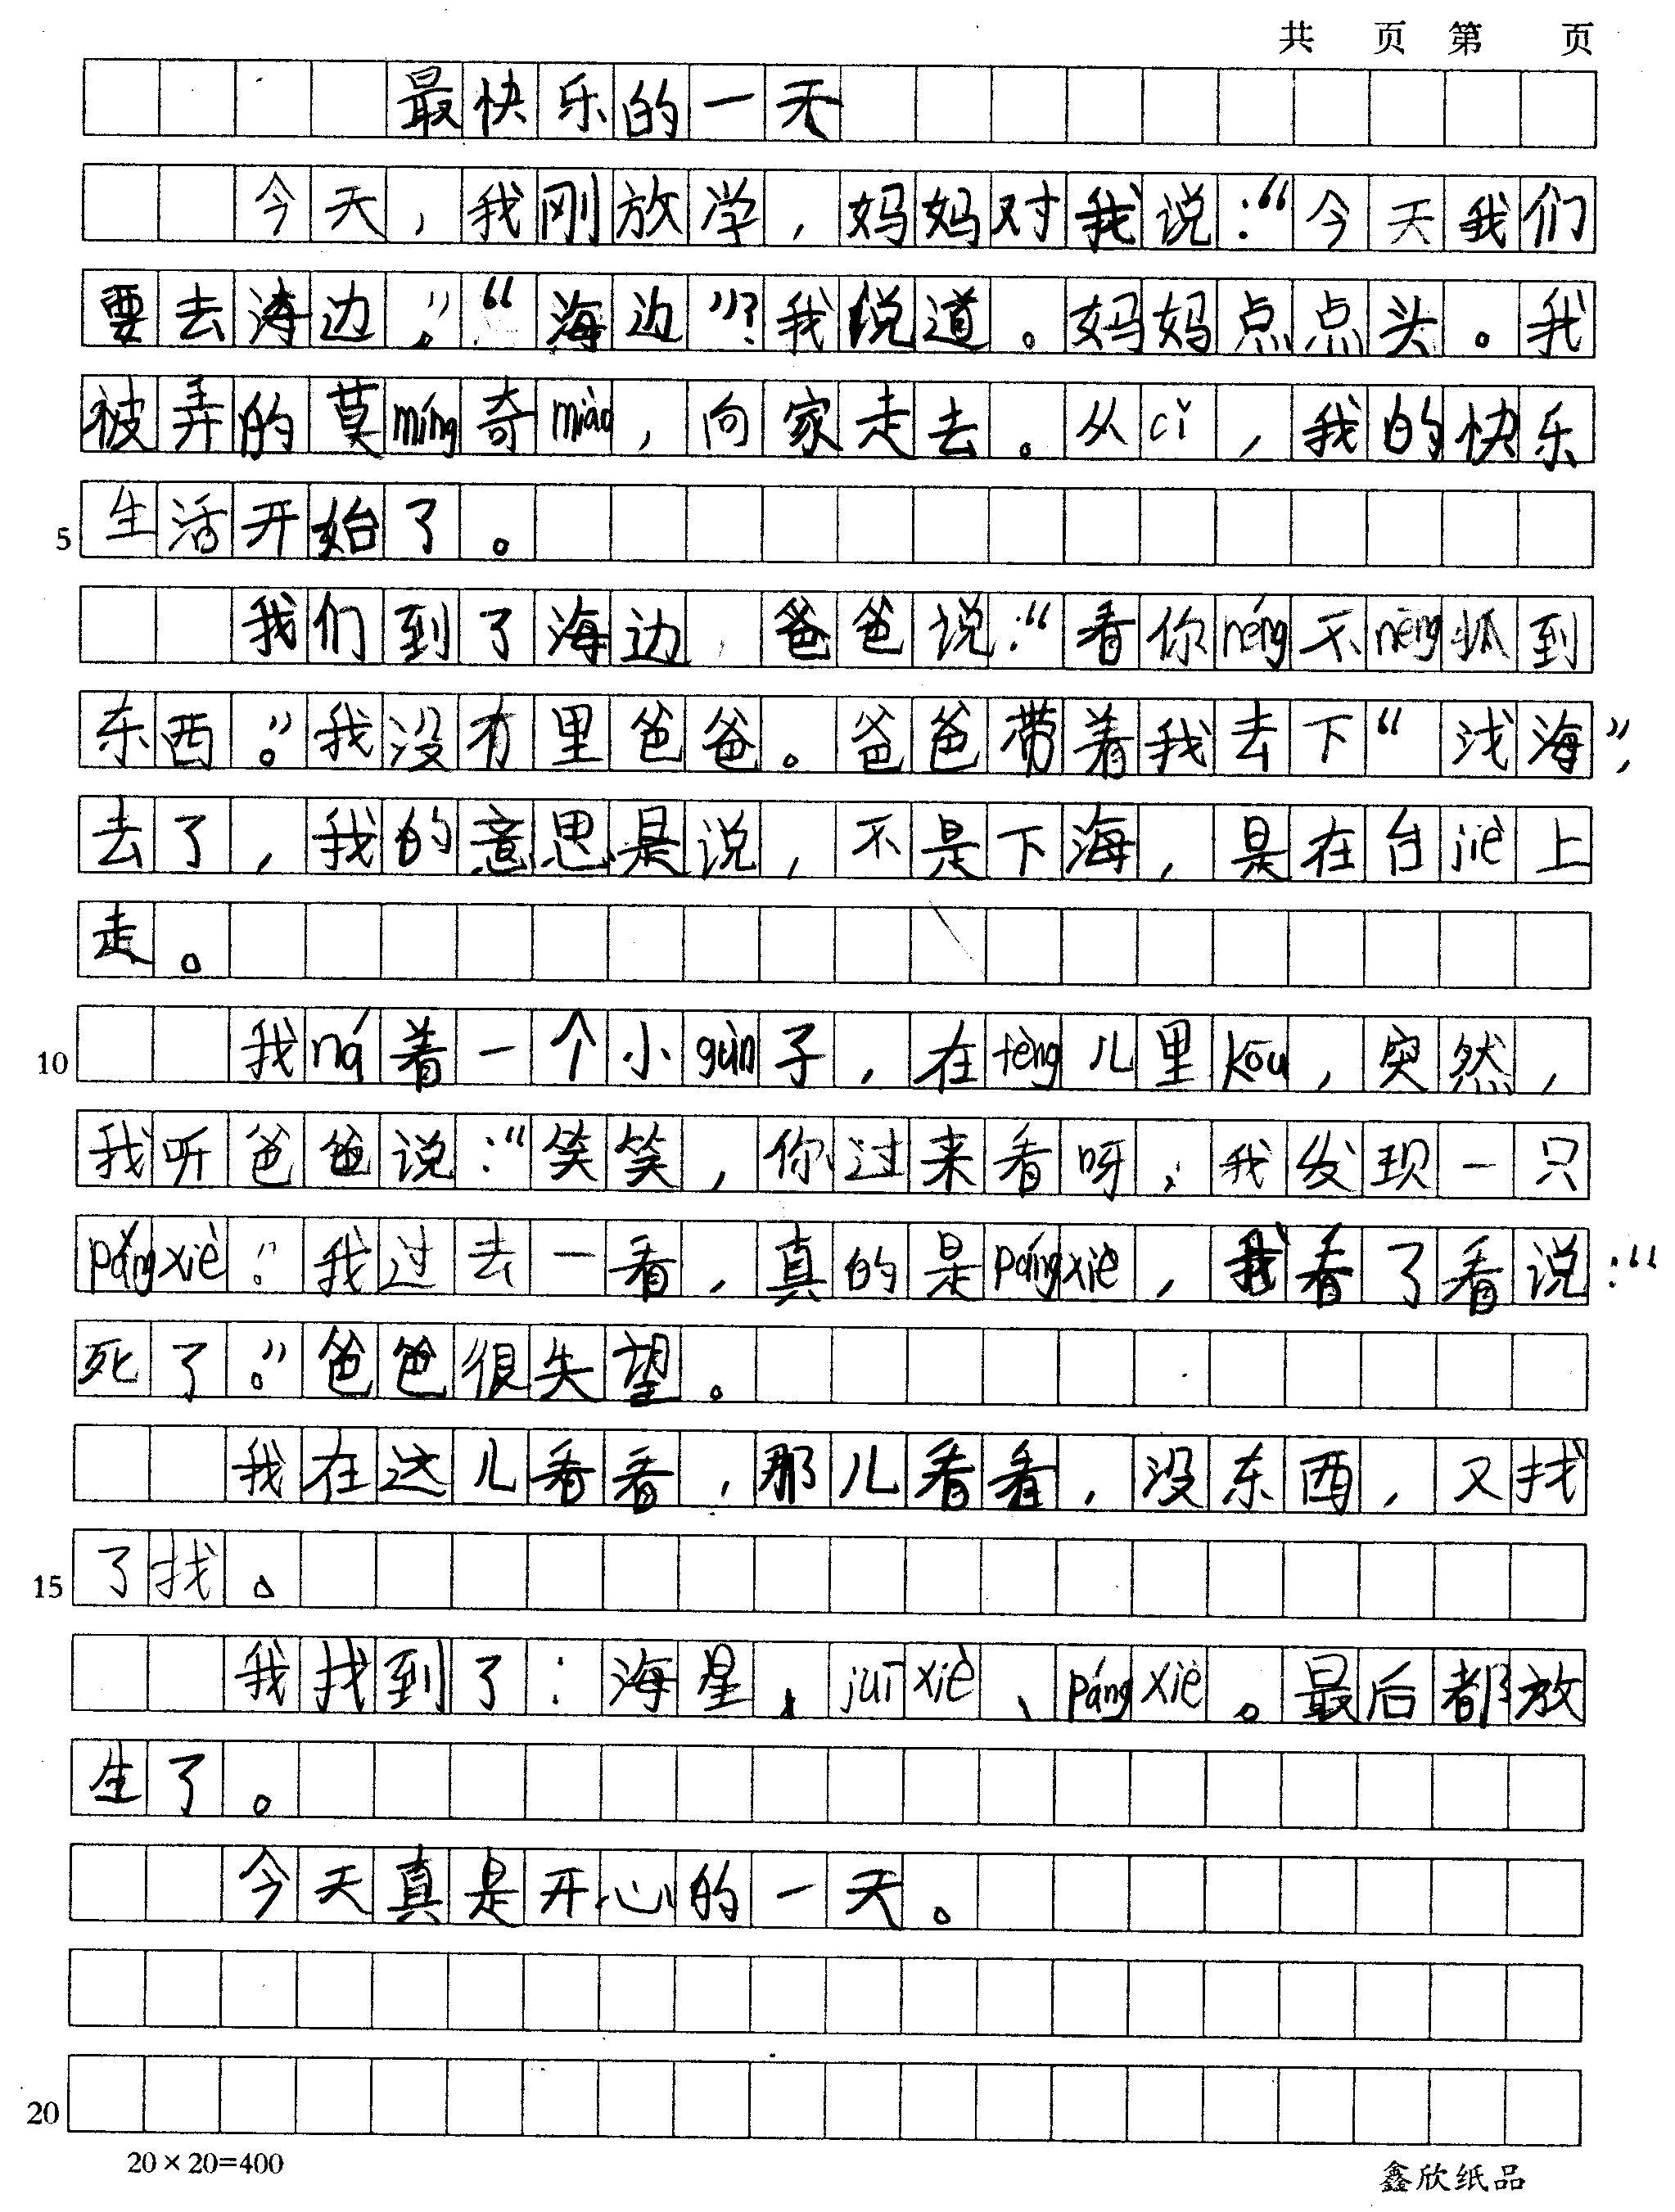 共 页 第 页
最快乐的一天
今天，我刚放学，妈妈对我说：“今天我们
要去海边。”“海边”？我说道。妈妈点点头。我
被弄的莫míng奇miào，向家走去。从cǐ，我的快乐
5 生活开始了。
我们到了海边，爸爸说：“看你néng不néng抓到
东西。”我没有里爸爸。爸爸带着我去下“浅海”，
去了，我的意思是说，不是下海，是在台jiē上
走。
10 我ná着一个小gùn子，在fèng儿里kōu，突然，
我听爸爸说：“笑笑，你过来看呀，我发现一只
pángxiè。”我过去一看，真的是pángxiè，我看了看说：“
死了。”爸爸很失望。
我在这儿看看，那儿看看，没东西，又找
15 了找。
我找到了：海星、juīxiè、pángxiè。最后都放
生了。
今天真是开心的一天。
20
20×20=400 鑫欣纸品